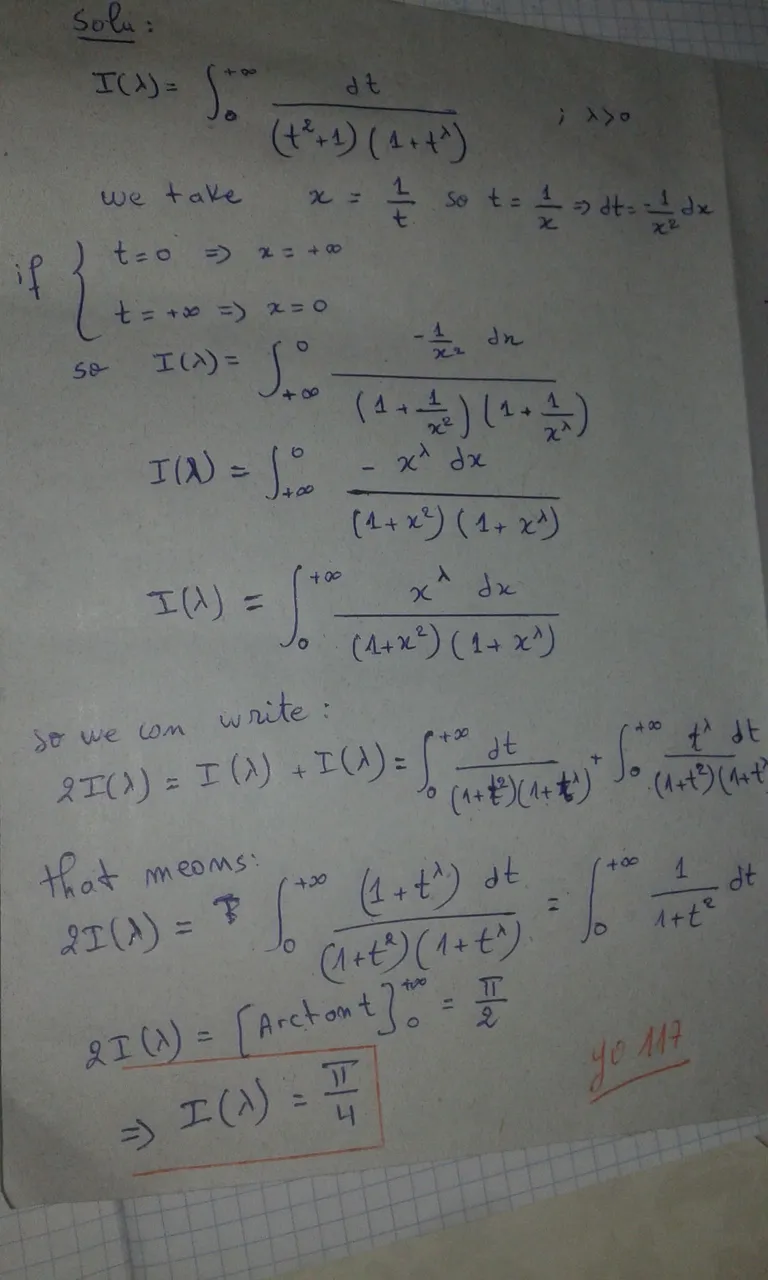 Solu:
I(λ) = ∫₀^{+∞} dt / ((t²+1)(1+t^λ)) ; λ>0
we take x = 1/t so t = 1/x ⇒ dt = -1/x² dx
if { t=0 ⇒ x=+∞
t=+∞ ⇒ x=0
so I(λ) = ∫_{+∞}^0 (-1/x² dx) / ((1+1/x²)(1+1/x^λ))
I(λ) = ∫_{+∞}^0 (-x^λ dx) / ((1+x²)(1+x^λ))
I(λ) = ∫₀^{+∞} (x^λ dx) / ((1+x²)(1+x^λ))
so we can write:
2I(λ) = I(λ) + I(λ) = ∫₀^{+∞} dt / ((1+t²)(1+t^λ)) + ∫₀^{+∞} (t^λ dt) / ((1+t²)(1+t^λ
that means:
2I(λ) = ∫₀^{+∞} ((1+t^λ) dt) / ((1+t²)(1+t^λ)) = ∫₀^{+∞} 1/(1+t²) dt
2I(λ) = [Arctan t]₀^{+∞} = π/2
⇒ I(λ) = π/4
yo 117